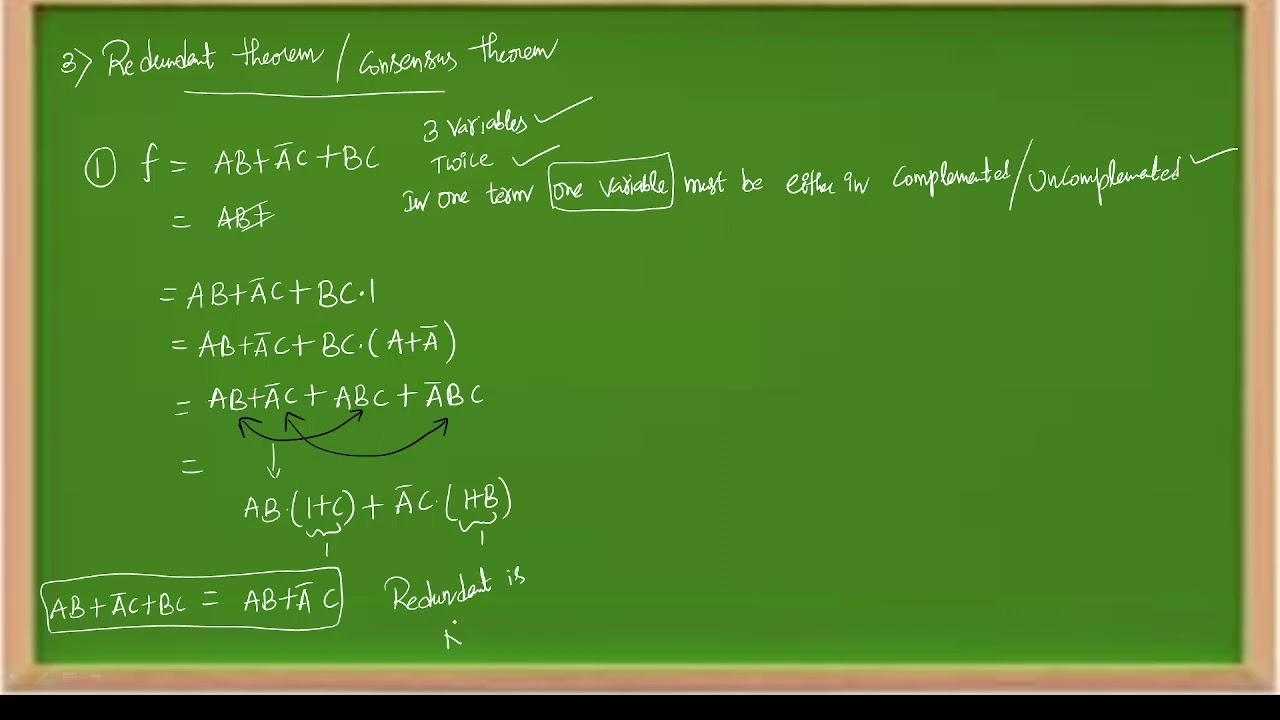 3) Redundant theorem / Consensus theorem
3 Variables ✓
① f = AB+A̅C+BC
Twice ✓
In one term one variable must be either in complemented/uncomplemented ✓
=
= AB+A̅C+BC·1
= AB+A̅C+BC·(A+A̅)
= AB+A̅C+ABC+A̅BC
=
AB·(1+C)+A̅C·(1+B)
1 1
AB+A̅C+BC = AB+A̅C
Redundant is